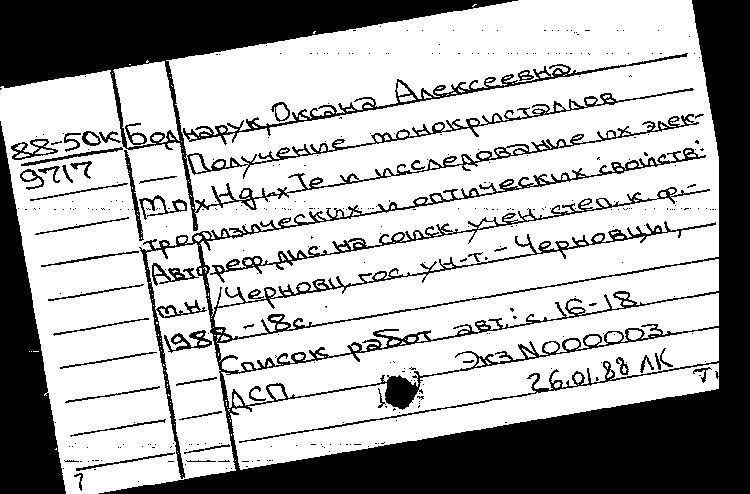 88-50К Боднарук, Оксана Алексеевна.
9717 Получение монокристаллов
MnxHg1-xTe и исследование их элек-
трофизических и оптических свойств:
Автореф. дис. на соиск. учен. степ. к. ф.-
м.н. /Черновиц. гос. ун-т.- Черновцы,
1988.-18с.
Список работ авт.: с. 16-18.
ДСП. Экз N000003.
26.01.88 ЛК